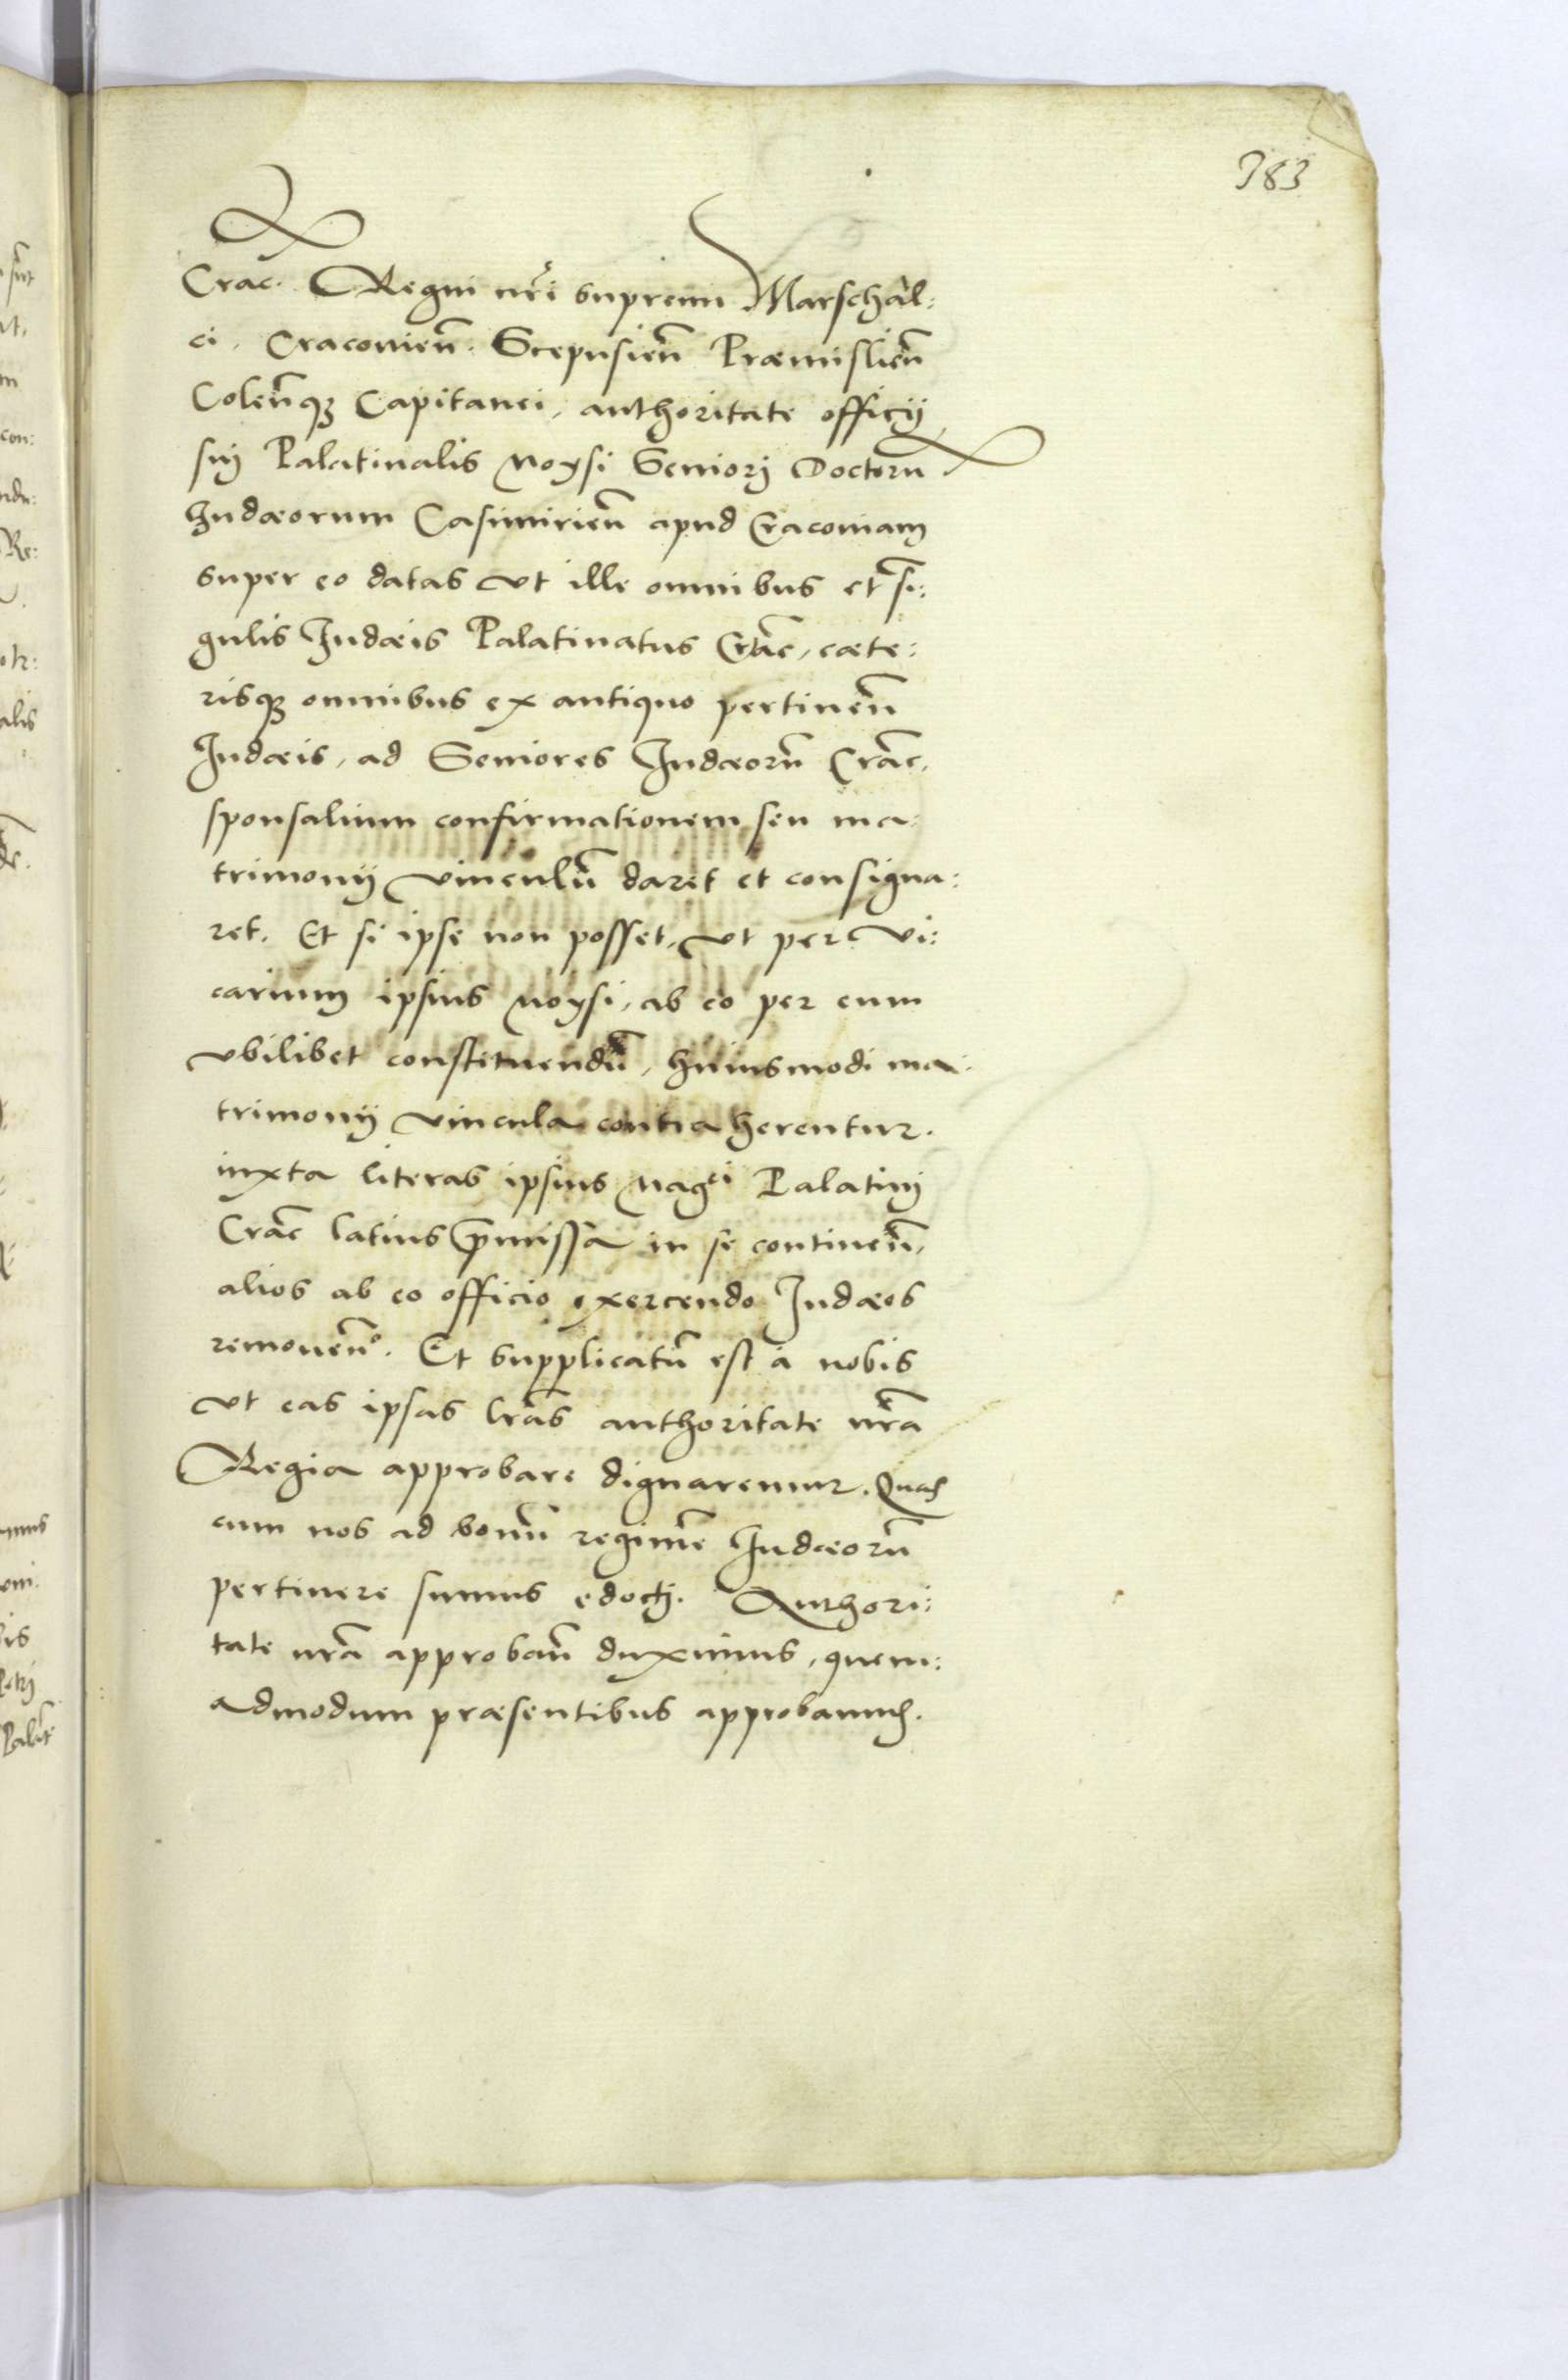 383
Crac. Regni nr̃i supremi Marschal:
ci. Cracovien̄. Scepusien̄ Præmislien̄
Colen̄q₃ Capitanei, authoritate officij
sui Palatinalis Moysi Seniori Doctorū
Iudæorum Casimirien̄ apud Cracoviam
super eo datas ut ille omnibus et sī:
gulis Iudæis Palatinatus Crac̄, cæte:
risq₃ omnibus ex antiquo pertinen̄
Iudæis, ad Seniores Iudæorū Crac̄,
sponsalium confirmationem seu ma:
trimonij vinculū daret et consigna:
ret. Et si ipse non posset, ut per vi:
carium ipsius Moysi, ab eo per eum
ubilibet constituendū, huiusmodi ma:
trimonij vincula contraherentur.
iuxta literas ipsius Mag^ci Palatini
Crac̄ latius p̄missa in se continen̄,
alios ab eo officio exercendo Iudæos
removen̄°. Et supplicatū est a nobis
ut eas ipsas lr̃as authoritate nr̃a
Regia approbare dignaremur. Quas
cum nos ad bonū regimē Iudæorū
pertinere simus edocti. Authori:
tate nr̃a approban̄ duximus, quem:
admodum præsentibus approbamus.